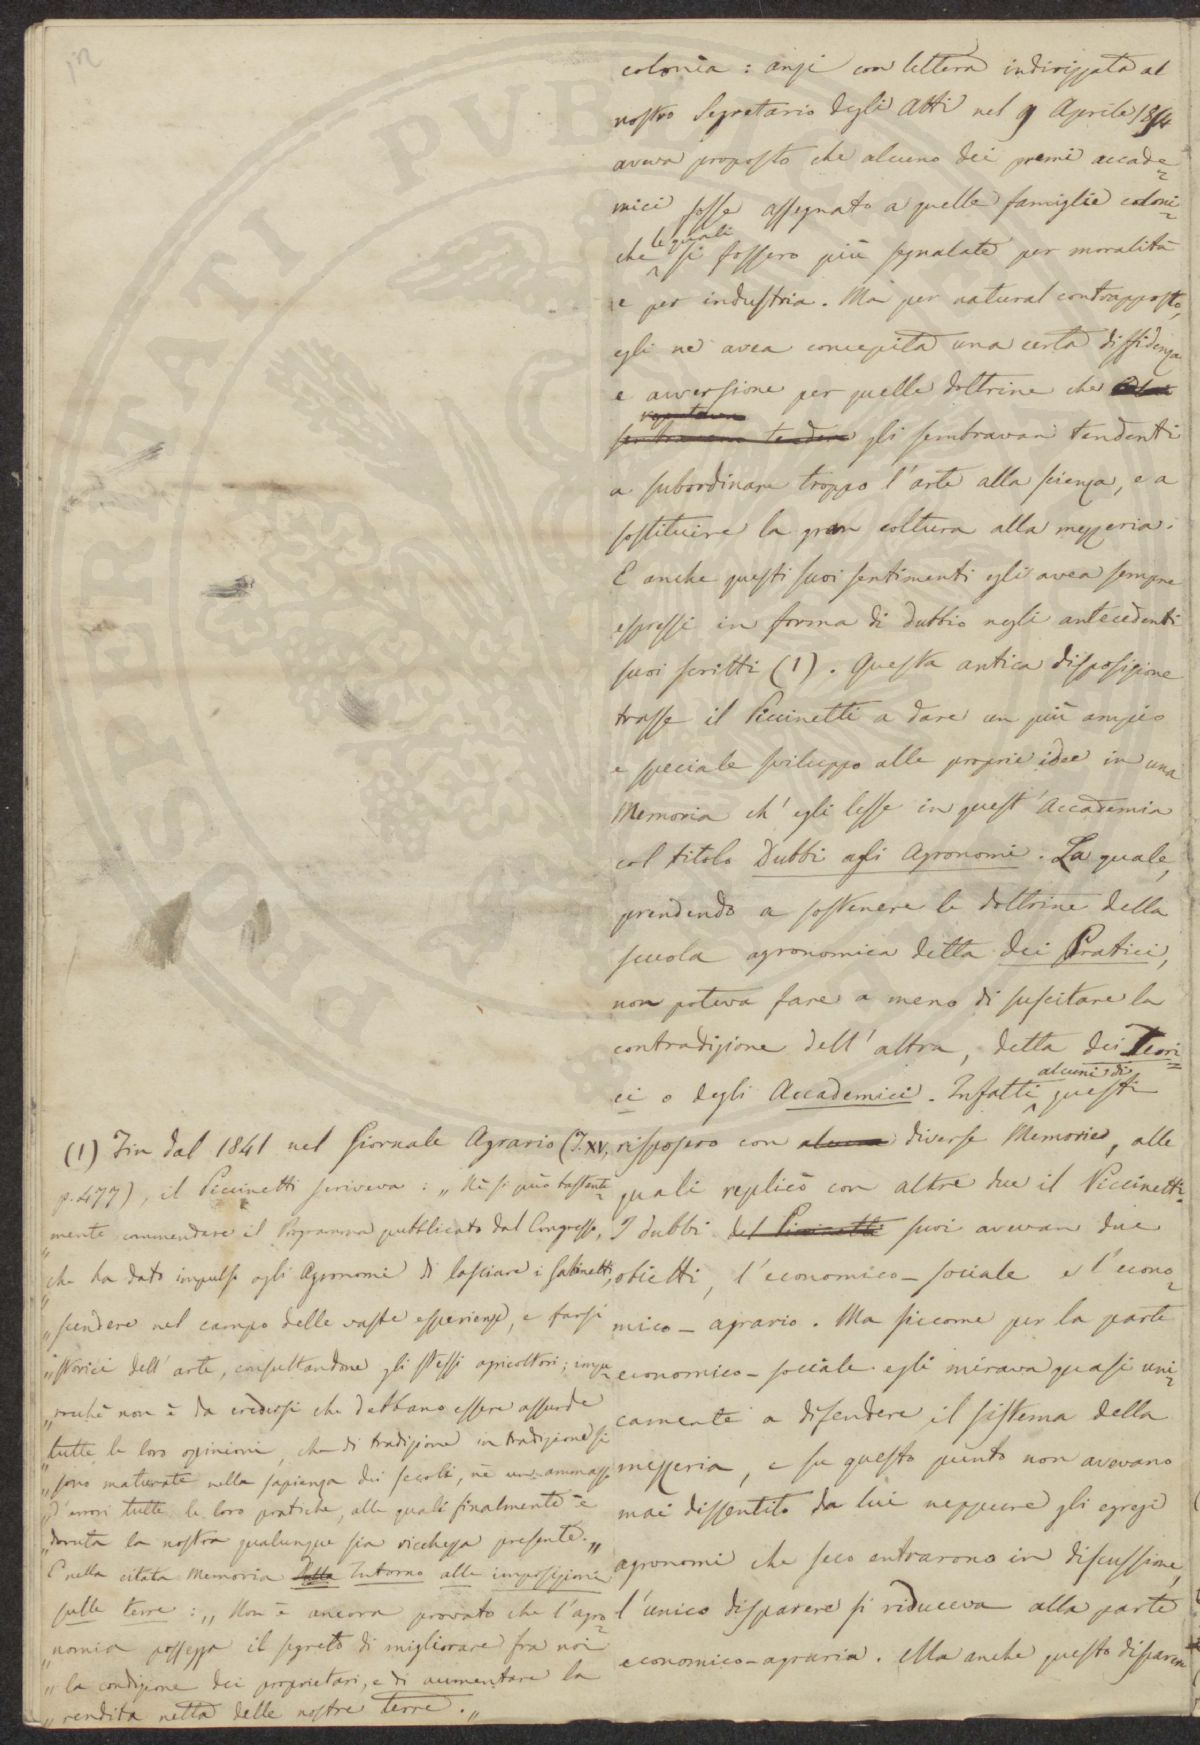 colonìa : anzi con lettera indirizzata al
nostro Segretario degli Atti nel 9 Aprile
aveva proposto che alcuno dei premi accade=
mici fosse assegnato a quelle famiglie coloni=
che le quali si fossero più segnalate per moralità
e per industria. Ma per natural contrapposto,
egli ne avea concepita una certa diffidenza
e avversione per quelle dottrine che
sembravano tendere gli sembravan tendenti
a subordinare troppo l'arte alla scienza, e a
sostituire la gran coltura alla mezzeria.
E anche questi suoi sentimenti egli avea sempre
espressi in forma di dubbio negli antecedenti
suoi scritti (1). Questa antica disposizione
trasse il Piccinetti a dare un più ampio
e speciale sviluppo alle proprie idee in una
Memoria ch'egli lesse in quest'Accademia
col titolo Dubbi agli Agronomi. La quale,
prendendo a sostenere le dottrine della
scuola agronomica detta dei Pratici,
non poteva fare a meno di suscitare la
contradizione dell'altra, detta dei Teori=
ci o degli Accademici. Infatti alcuni di questi
risposero con diverse Memorie, alle
quali replicò con altre due il Piccinetti.
I dubbi del Piccinetti suoi avevan due
obietti, l'economico-sociale e l'econo=
mico-agrario. Ma siccome per la parte
economico-sociale egli mirava quasi uni=
camente a difendere il sistema della
mezzeria, e su questo punto non avevano
mai dissentito da lui neppure gli egregi
agronomi che seco entrarono in discussione,
l'unico disparere si riduceva alla parte
economico-agraria. Ma anche questo disparere
(1) Fin dal 1841 nel Giornale Agrario (T. XV,
p. 477), il Piccinetti scriveva: „ Nè si può bastante=
„ mente commendare il Programma pubblicato dal Congresso,
„ che ha dato impulso agli Agronomi di lasciare i Gabinetti,
„ scendere nel campo delle vaste esperienze, e farsi
„ istorici dell'arte, consultandone gli stessi agricoltori; impe=
„ rochè non è da credersi che debbano essere assurde
„ tutte le loro opinioni, che di tradizione in tradizione si
„ sono maturate nella sapienza dei secoli, nè un ammasso
„ d'errori tutte le loro pratiche, alle quali finalmente è
„ dovuta la nostra qualunque sia ricchezza presente. „
E nella citata Memoria Intorno alle imposizioni
sulle terre: „ Non è ancora provato che l'agro=
„ nomia possegga il segreto di migliorare fra noi
„ la condizione dei proprietari, e di aumentare la
„ rendita netta delle nostre terre. „